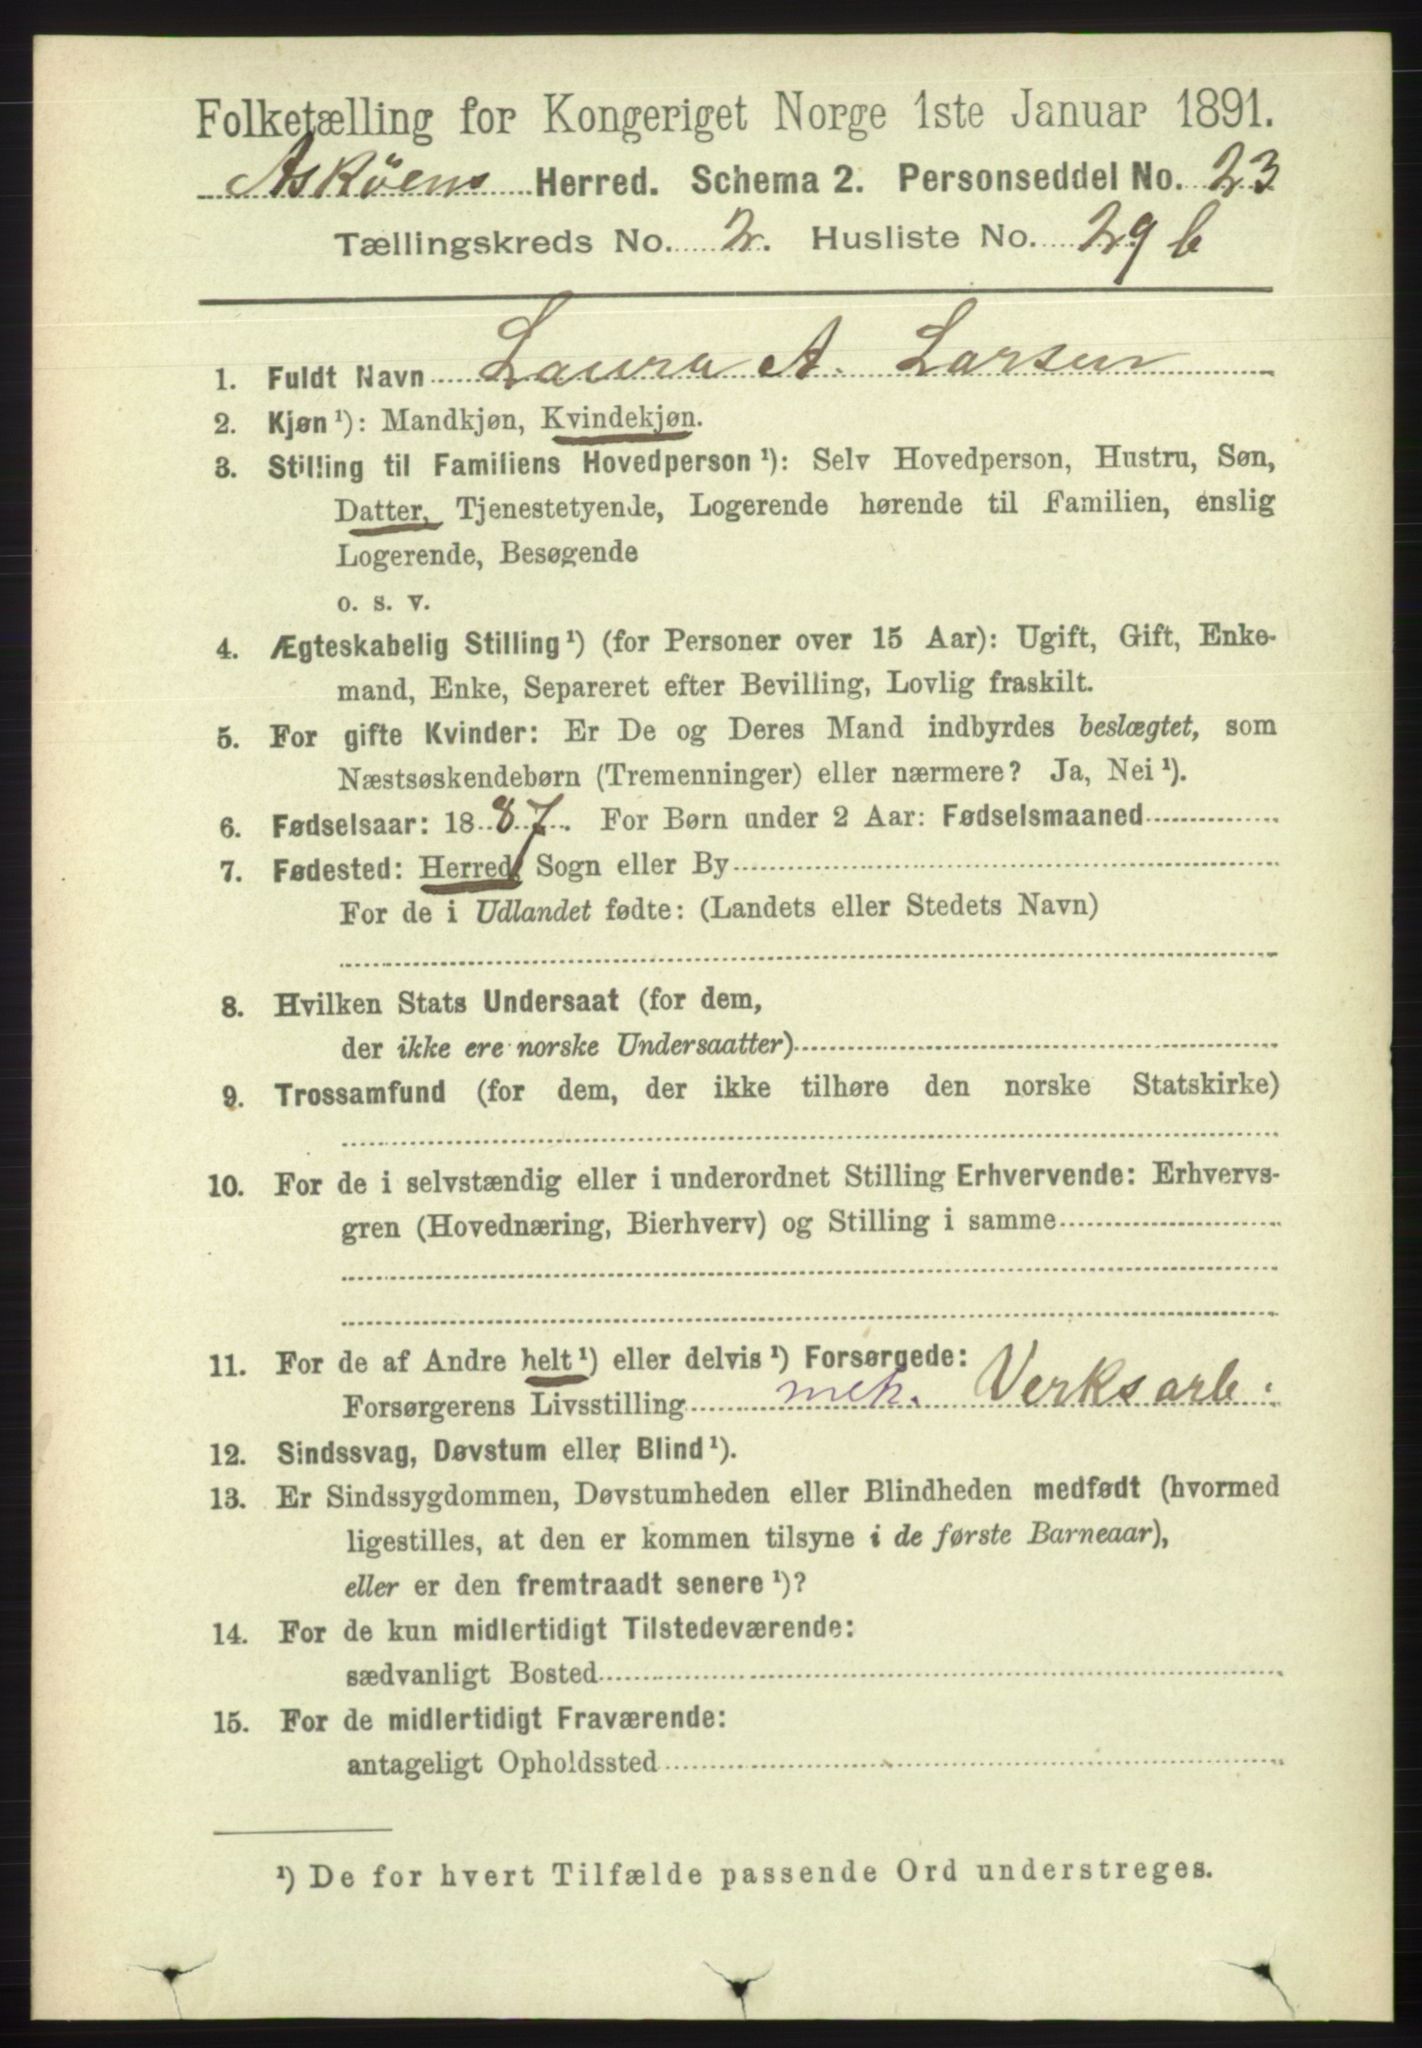 Folketælling for Kongeriget Norge 1ste Januar 1891.
Askøens Herred. Schema 2. Personseddel No. 23
Tællingskreds No. 2. Husliste No. 29 b
1. Fuldt Navn Laura A. Larsen
2. Kjøn ¹): Mandkjøn, Kvindekjøn.
3. Stilling til Familiens Hovedperson ¹): Selv Hovedperson, Hustru, Søn,
Datter, Tjenestetyende, Logerende hørende til Familien, enslig
Logerende, Besøgende
o. s. v.
4. Ægteskabelig Stilling ¹) (for Personer over 15 Aar): Ugift, Gift, Enke-
mand, Enke, Separeret efter Bevilling, Lovlig fraskilt.
5. For gifte Kvinder: Er De og Deres Mand indbyrdes beslægtet, som
Næstsøskendebørn (Tremenninger) eller nærmere? Ja, Nei ¹).
6. Fødselsaar: 1887. For Børn under 2 Aar: Fødselsmaaned
7. Fødested: Herred, Sogn eller By
For de i Udlandet fødte: (Landets eller Stedets Navn)
8. Hvilken Stats Undersaat (for dem,
der ikke ere norske Undersaatter)
9. Trossamfund (for dem, der ikke tilhøre den norske Statskirke)
10. For de i selvstændig eller i underordnet Stilling Erhvervende: Erhvervs-
gren (Hovednæring, Bierhverv) og Stilling i samme
11. For de af Andre helt ¹) eller delvis ¹) Forsørgede:
Forsørgerens Livsstilling mek. Verksarb.
12. Sindssvag, Døvstum eller Blind ¹).
13. Er Sindssygdommen, Døvstumheden eller Blindheden medfødt (hvormed
ligestilles, at den er kommen tilsyne i de første Barneaar),
eller er den fremtraadt senere ¹)?
14. For de kun midlertidigt Tilstedeværende:
sædvanligt Bosted
15. For de midlertidigt Fraværende:
antageligt Opholdssted
¹) De for hvert Tilfælde passende Ord understreges.